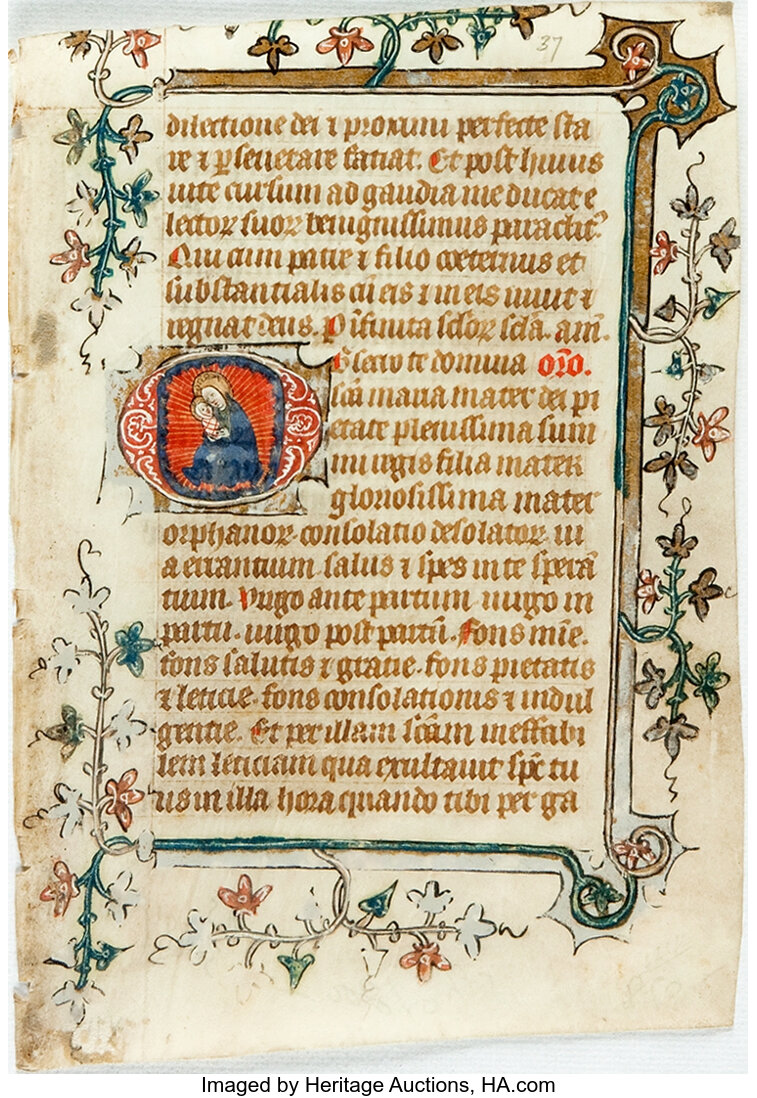 37
dilectione dei ⁊ proximi perfecte sta
re ⁊ ꝑseuerare faciat. Et post huius
uite cursum ad gaudia me ducat e
lectoꝝ suoꝝ benignissimus paraclitꝰ.
Qui cum patre ⁊ filio coeternus et
substantialis cū eis ⁊ in eis uiuit ⁊
regnat deus. P infinita sclōꝝ sclā. am̄.
Obsecro te domina orō.
scā maria mater dei pi
etate plenissima sum
mi regis filia mater
gloriosissima mater
orphanoꝝ. consolatio desolatoꝝ. ui
a errantium. salus ⁊ spes in te sperā
tium. Virgo ante partum. uirgo in
partu. uirgo post partū. Fons mīe.
fons salutis ⁊ gratie. fons pietatis
⁊ leticie. fons consolationis ⁊ indul
gentie. Et per illam scām ineffabi
lem leticiam qua exultauit spc tu
us in illa hora quando tibi per ga
Imaged by Heritage Auctions, HA.com